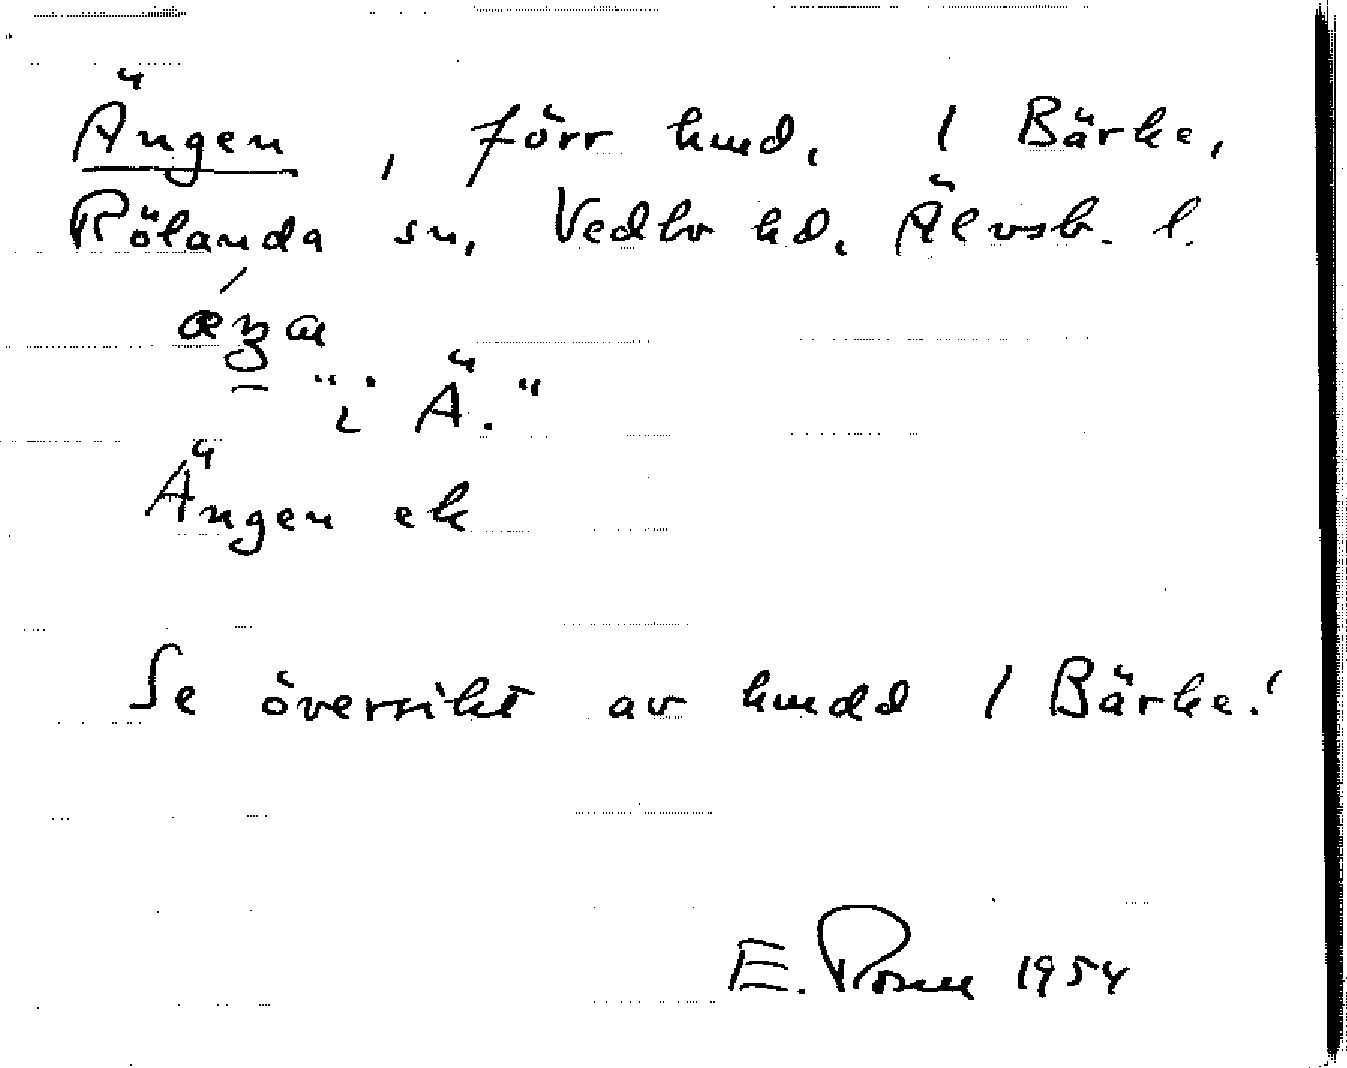 Ängen, förr hmd. / Bärke,
Rölanda sn, Vedbo hd. Älvsb. l.
"i Ä."
Ängen ek
Se översikt av hmdd / Bärke!
E. 1954